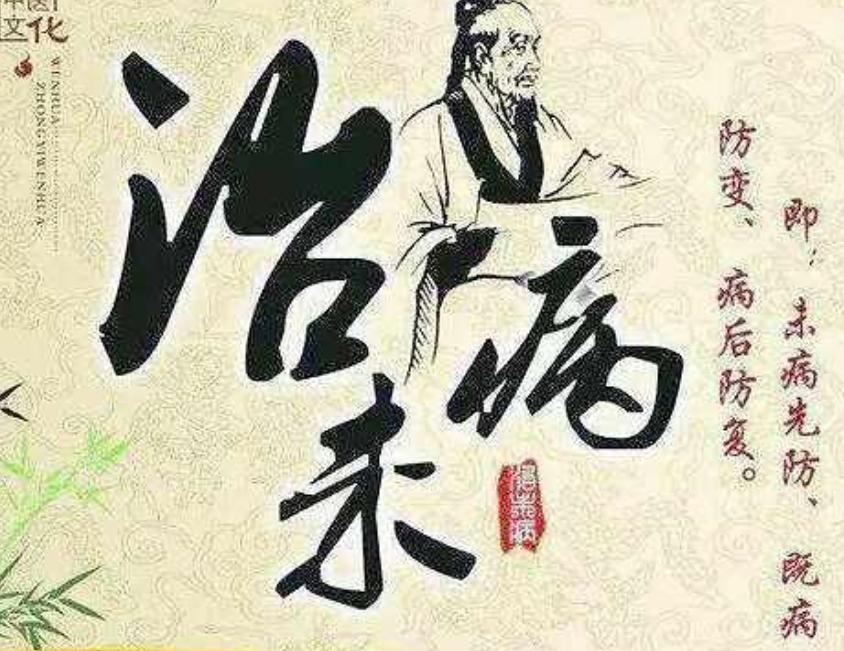 中医
文化
WENHUA
ZHONGYIWENHUA
治
未
病
治未病
即：未病先防、既病
防变、病后防复。